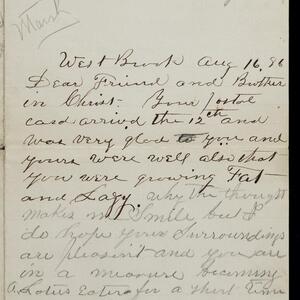 Marsh
West Brook Aug 16, 86
Dear Friend and Brother
in Christ. Your Postal
card arrived the 12th and
was very glad to you and
yours were well also that
you were growing Fat
and Lazy. why the thought
makes me Smile but I
do hope your Surroundings
are pleasant and you are
in a measure becoming
a Lotus Eater for a Short Time